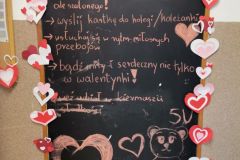 → wyślij kartkę do kolegi/koleżanki
→ wsłuchaj się w rytm miłosnych
przebojów
→ bądź miły i serdeczny nie tylko
w walentynki!
weź udział w kiermaszu
słodkości
5U